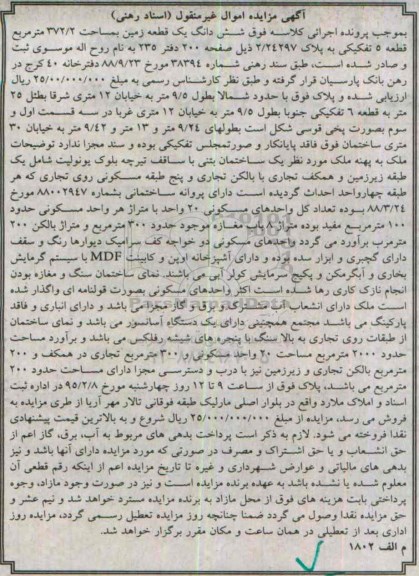 آگهی مزایده اموال غیرمنقول (اسناد رهنی)
بموجب پرونده اجرائی کلاسه فوق شش دانگ یک قطعه زمین بمساحت ۳۷۲/۲ مترمربع
قطعه ۵ تفکیکی به پلاک ۲/۲۴۲۹۷ ذیل صفحه ۲۰۰ دفتر ۲۳۵ به نام روح اله موسوی ثبت
و صادر شده است، طبق سند رهنی شماره ۳۸۳۹۴ مورخ ۸۸/۹/۲۳ دفترخانه ۴۰ کرج در
رهن بانک پارسیان قرار گرفته و طبق نظر کارشناس رسمی به مبلغ ۲۵/۰۰۰/۰۰۰/۰۰۰ ریال
ارزیابی شده و پلاک فوق با حدود شمالا بطول ۹/۵ متر به خیابان ۱۲ متری شرقا بطل ۲۵
متر به قطعه ۶ تفکیکی جنوبا بطول ۹/۵ متر به خیابان ۱۲ متری غربا در سه قسمت اول و
سوم بصورت پخی قوسی شکل است بطولهای ۹/۲۴ متر و ۱۳ متر و ۹/۴۲ متر به خیابان ۳۰
متری ساختمان فوق فاقد پایانکار و صورتمجلس تفکیکی بوده و سند مجزا ندارد توضیحات
ملک به پهنه ملک مورد نظر یک ساختمان بتنی با سقف تیرچه بلوک یونولیت شامل یک
طبقه زیرزمین و همکف تجاری با بالکن تجاری و پنج طبقه مسکونی روی تجاری که هر
طبقه چهارواحد احداث گردیده است دارای پروانه ساختمانی بشماره ۸۸۰۰۲۹۴۷ مورخ
۸۸/۳/۲۴ بوده تعداد کل واحدهای مسکونی ۲۰ واحد با متراژ هر واحد مسکونی حدود
۱۰۰ مترمربع مفید بوده متراژ یکباب مغازه موجود حدود ۳۰۰ مترمربع و متراژ بالکن ۲۰۰
مترمرب برآورد می گردد واحدهای مسکونی دو خوابه کف سرامیک دیوارها رنگ و سقف
دارای گچبری و ابزار سده بوده و دارای آشپزخانه اوپن و کابینت MDF با سیستم گرمایش
بخاری و آبگرمکن و پکیج سرمایش کولر آبی می باشند. نمای ساختمان سنگ و مغازه بودن
انجام نازک کاری رها شده است اکثر واحدهای مسکونی بصورت قولنامه ای واگذار شده
است ملک دارای انشعاب آب مشترک و برق و گاز مجزا می باشد و دارای انباری و فاقد
پارکینگ می باشد مجتمع همچنین دارای یک دستگاه آسانسور می باشد و نمای ساختمان
از طبقات روی تجاری به بالا سنگ با پنجره های شیشه رفلکس می باشد و برآورد مساحت
حدود ۲۰۰۰ مترمربع مساحت ۲۰ واحد مسکونی و ۳۰۰ مترمربع تجاری در همکف و ۲۰۰
مترمربع بالکن تجاری و زیرزمین نیز با درب و دسترسی مجزا دارای مساحت حدود ۲۰۰
مترمربع می باشد، پلاک فوق از ساعت ۹ تا ۱۲ روز چهارشنبه مورخ ۹۵/۲/۸ در اداره ثبت
اسناد و املاک ملارد واقع در بلوار اصلی مارلیک طبقه فوقانی تالار مهر آریا از طری مزایده به
فروش می رسد، مزایده از مبلغ ۲۵/۰۰۰/۰۰۰/۰۰۰ ریال شروع و به بالاترین قیمت پیشنهادی
نقدا فروخته می شود. لازم به ذکر است پرداخت بدهی های مربوط به آب، برق، گاز اعم از
حق انشعاب و یا حق اشتراک و مصرف در صورتی که مورد مزایده دارای آنها باشد و نیز
بدهی های مالیاتی و عوارض شهرداری و غیره تا تاریخ مزایده اعم از اینکه رقم قطعی آن
معلوم شده یا نشده باشد به عهده برنده مزایده است و نیز در صورت وجود مازاد، وجوه
پرداختی بابت هزینه های فوق از محل مازاد به برنده مزایده مسترد خواهد شد و نیم عشر و
حق مزایده نقدا وصول می گردد ضمنا چنانچه روز مزایده تعطیل رسمی گردد، مزایده روز
اداری بعد از تعطیلی در همان ساعت و مکان مقرر برگزار خواهد شد.
م الف ۱۸۰۲